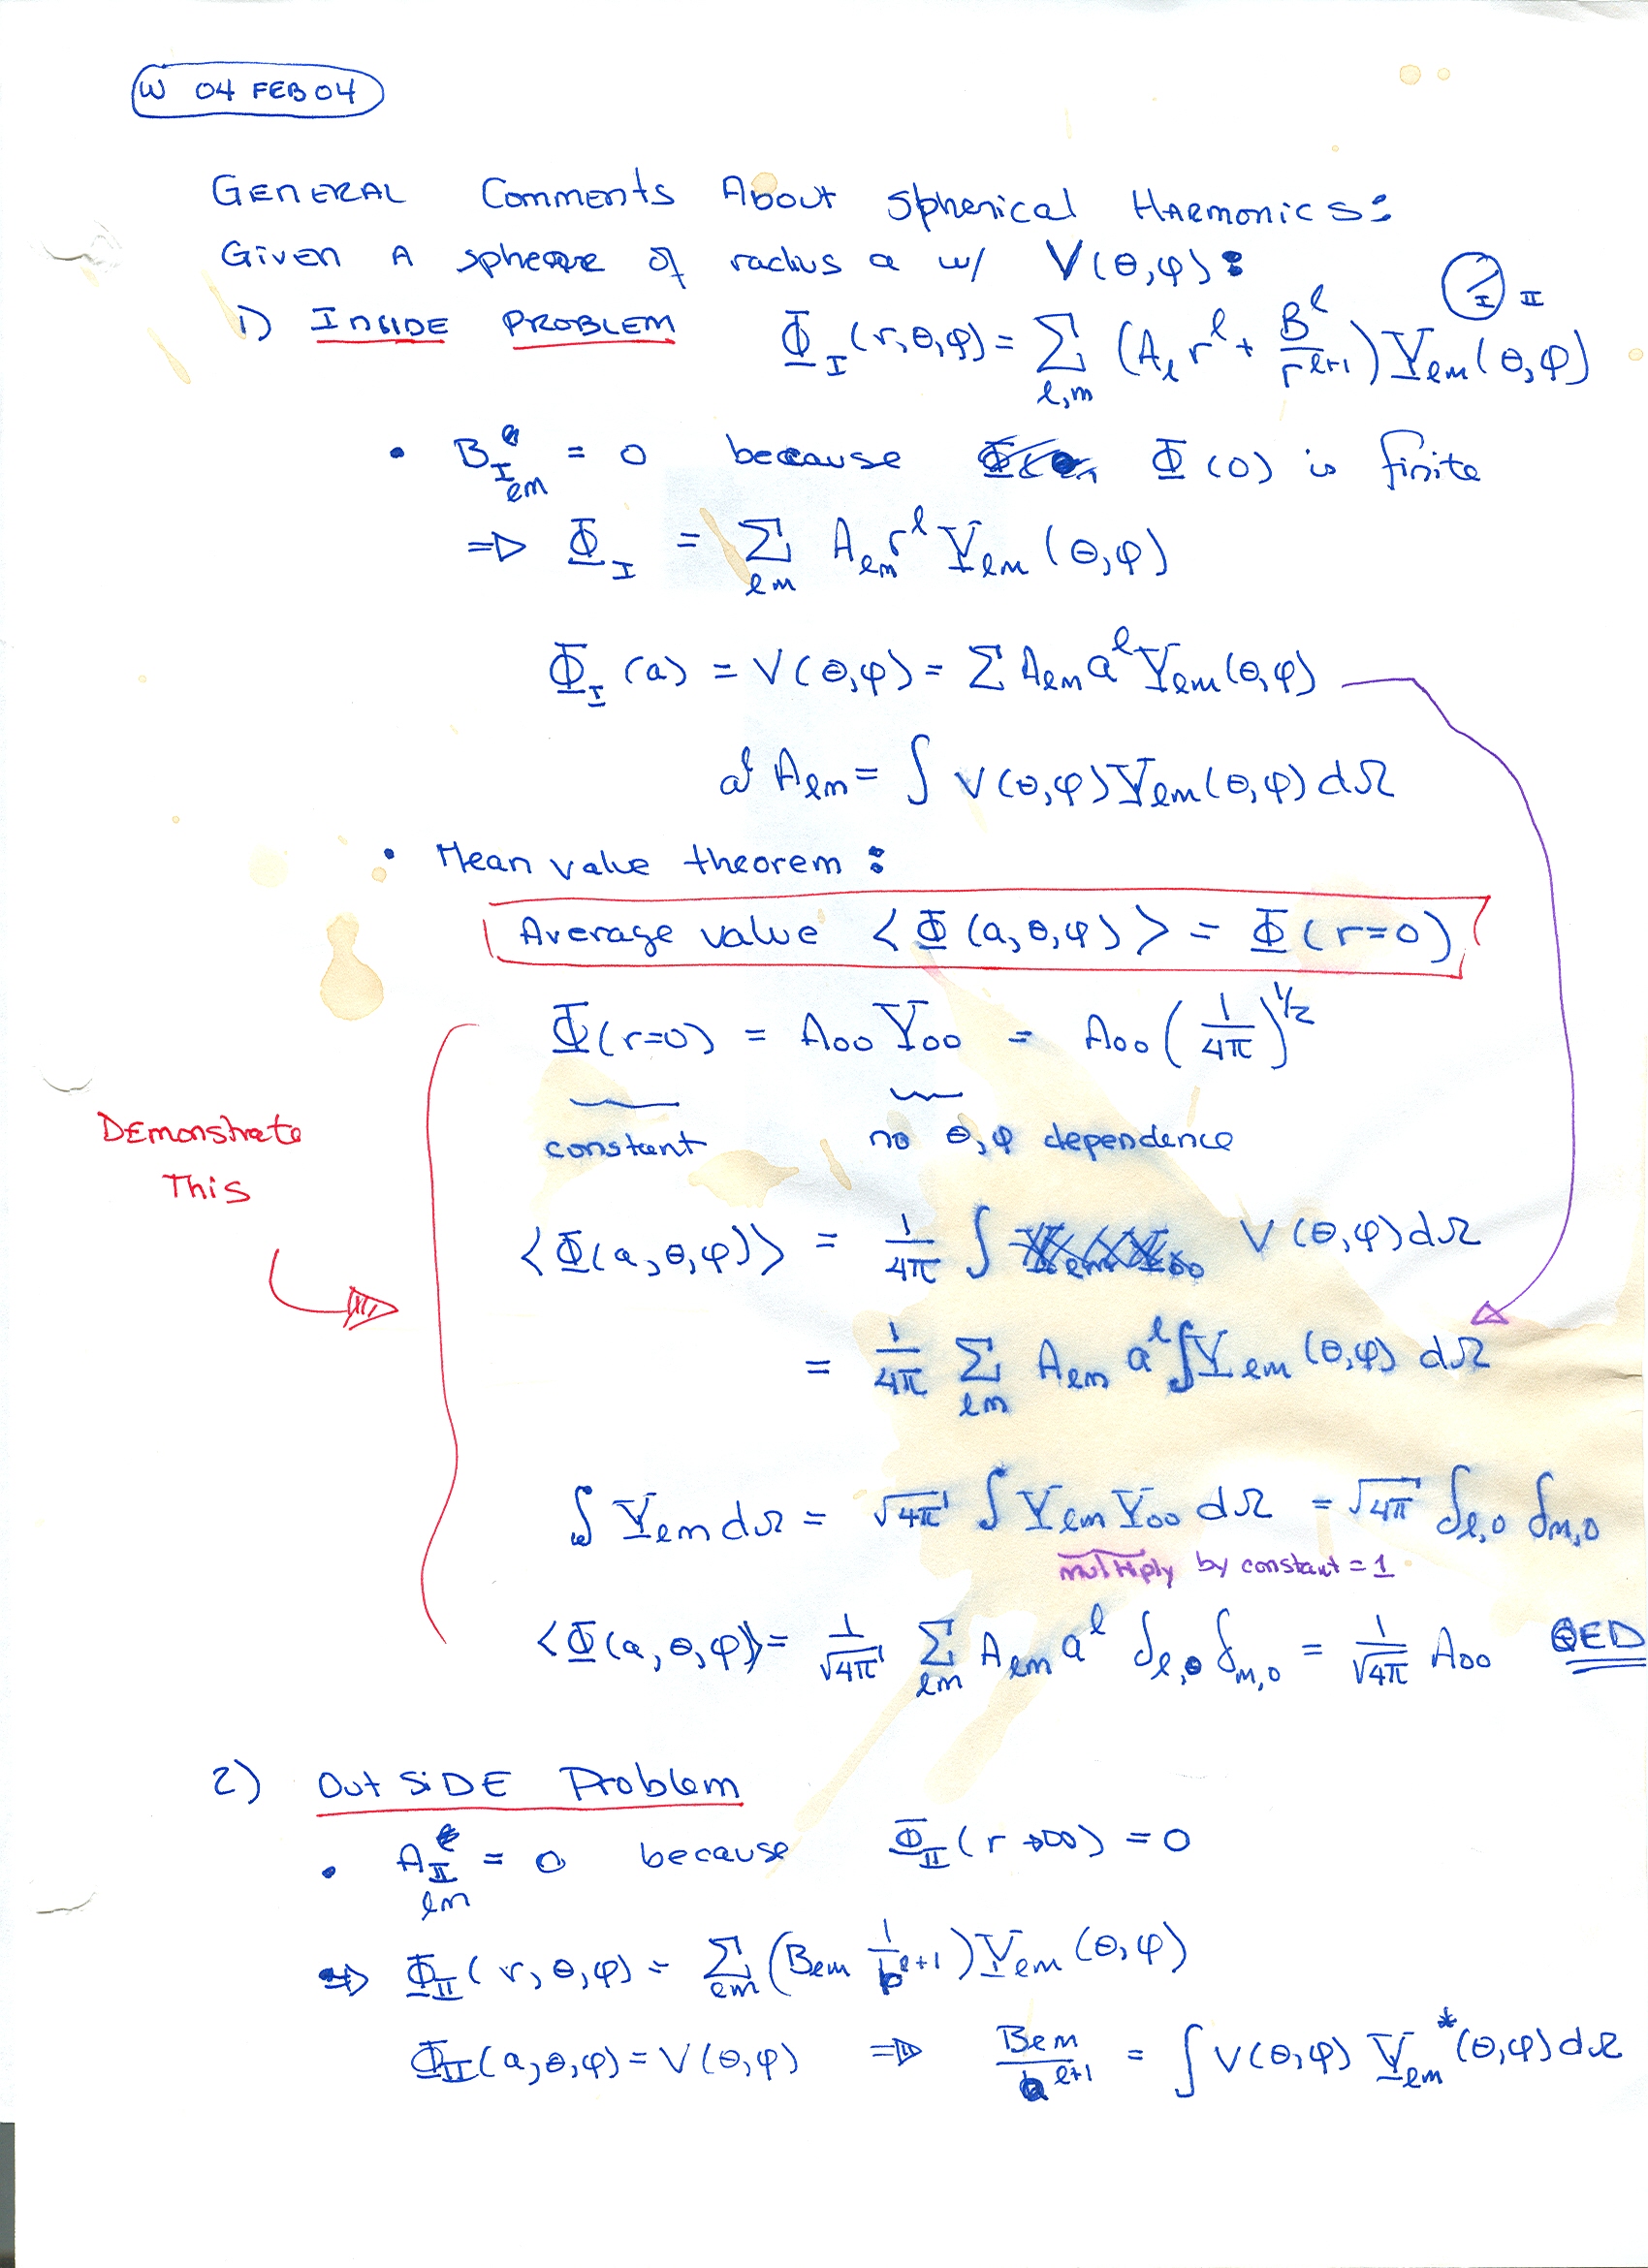 W 04 FEB 04
GENERAL Comments About Spherical Harmonics:
Given A sphere of radius a w/ V(θ,φ):
I II
1) INSIDE PROBLEM Φ_I(r,θ,φ) = Σ_{l,m} (A_l r^l + B^l/r^{l+1}) Y_lm(θ,φ)
• B_I lm = 0 because Φ(0) is finite
⇒ Φ_I = Σ_{lm} A_lm r^l Y_lm(θ,φ)
Φ_I(a) = V(θ,φ) = Σ A_lm a^l Y_lm(θ,φ)
a^l A_lm = ∫ V(θ,φ) Y_lm(θ,φ) dΩ
• Mean value theorem:
Average value <Φ(a,θ,φ)> = Φ(r=0)
Φ(r=0) = A_00 Y_00 = A_00 (1/4π)^{1/2}
constant no θ,φ dependence
Demonstrate
This
<Φ(a,θ,φ)> = 1/4π ∫ V(θ,φ) dΩ
= 1/4π Σ_{lm} A_lm a^l ∫ Y_lm(θ,φ) dΩ
∫ Y_lm dΩ = √4π ∫ Y_lm Y_00 dΩ = √4π δ_{l,0} δ_{m,0}
multiply by constant = 1
<Φ(a,θ,φ)> = 1/√4π Σ_{lm} A_lm a^l δ_{l,0} δ_{m,0} = 1/√4π A_00 QED
2) OutSiDE Problem
• A_II lm = 0 because Φ_II(r→∞) = 0
⇒ Φ_II(r,θ,φ) = Σ_{lm} (B_lm 1/r^{l+1}) Y_lm(θ,φ)
Φ_II(a,θ,φ) = V(θ,φ) ⇒ B_lm/a^{l+1} = ∫ V(θ,φ) Y_lm^*(θ,φ) dΩ